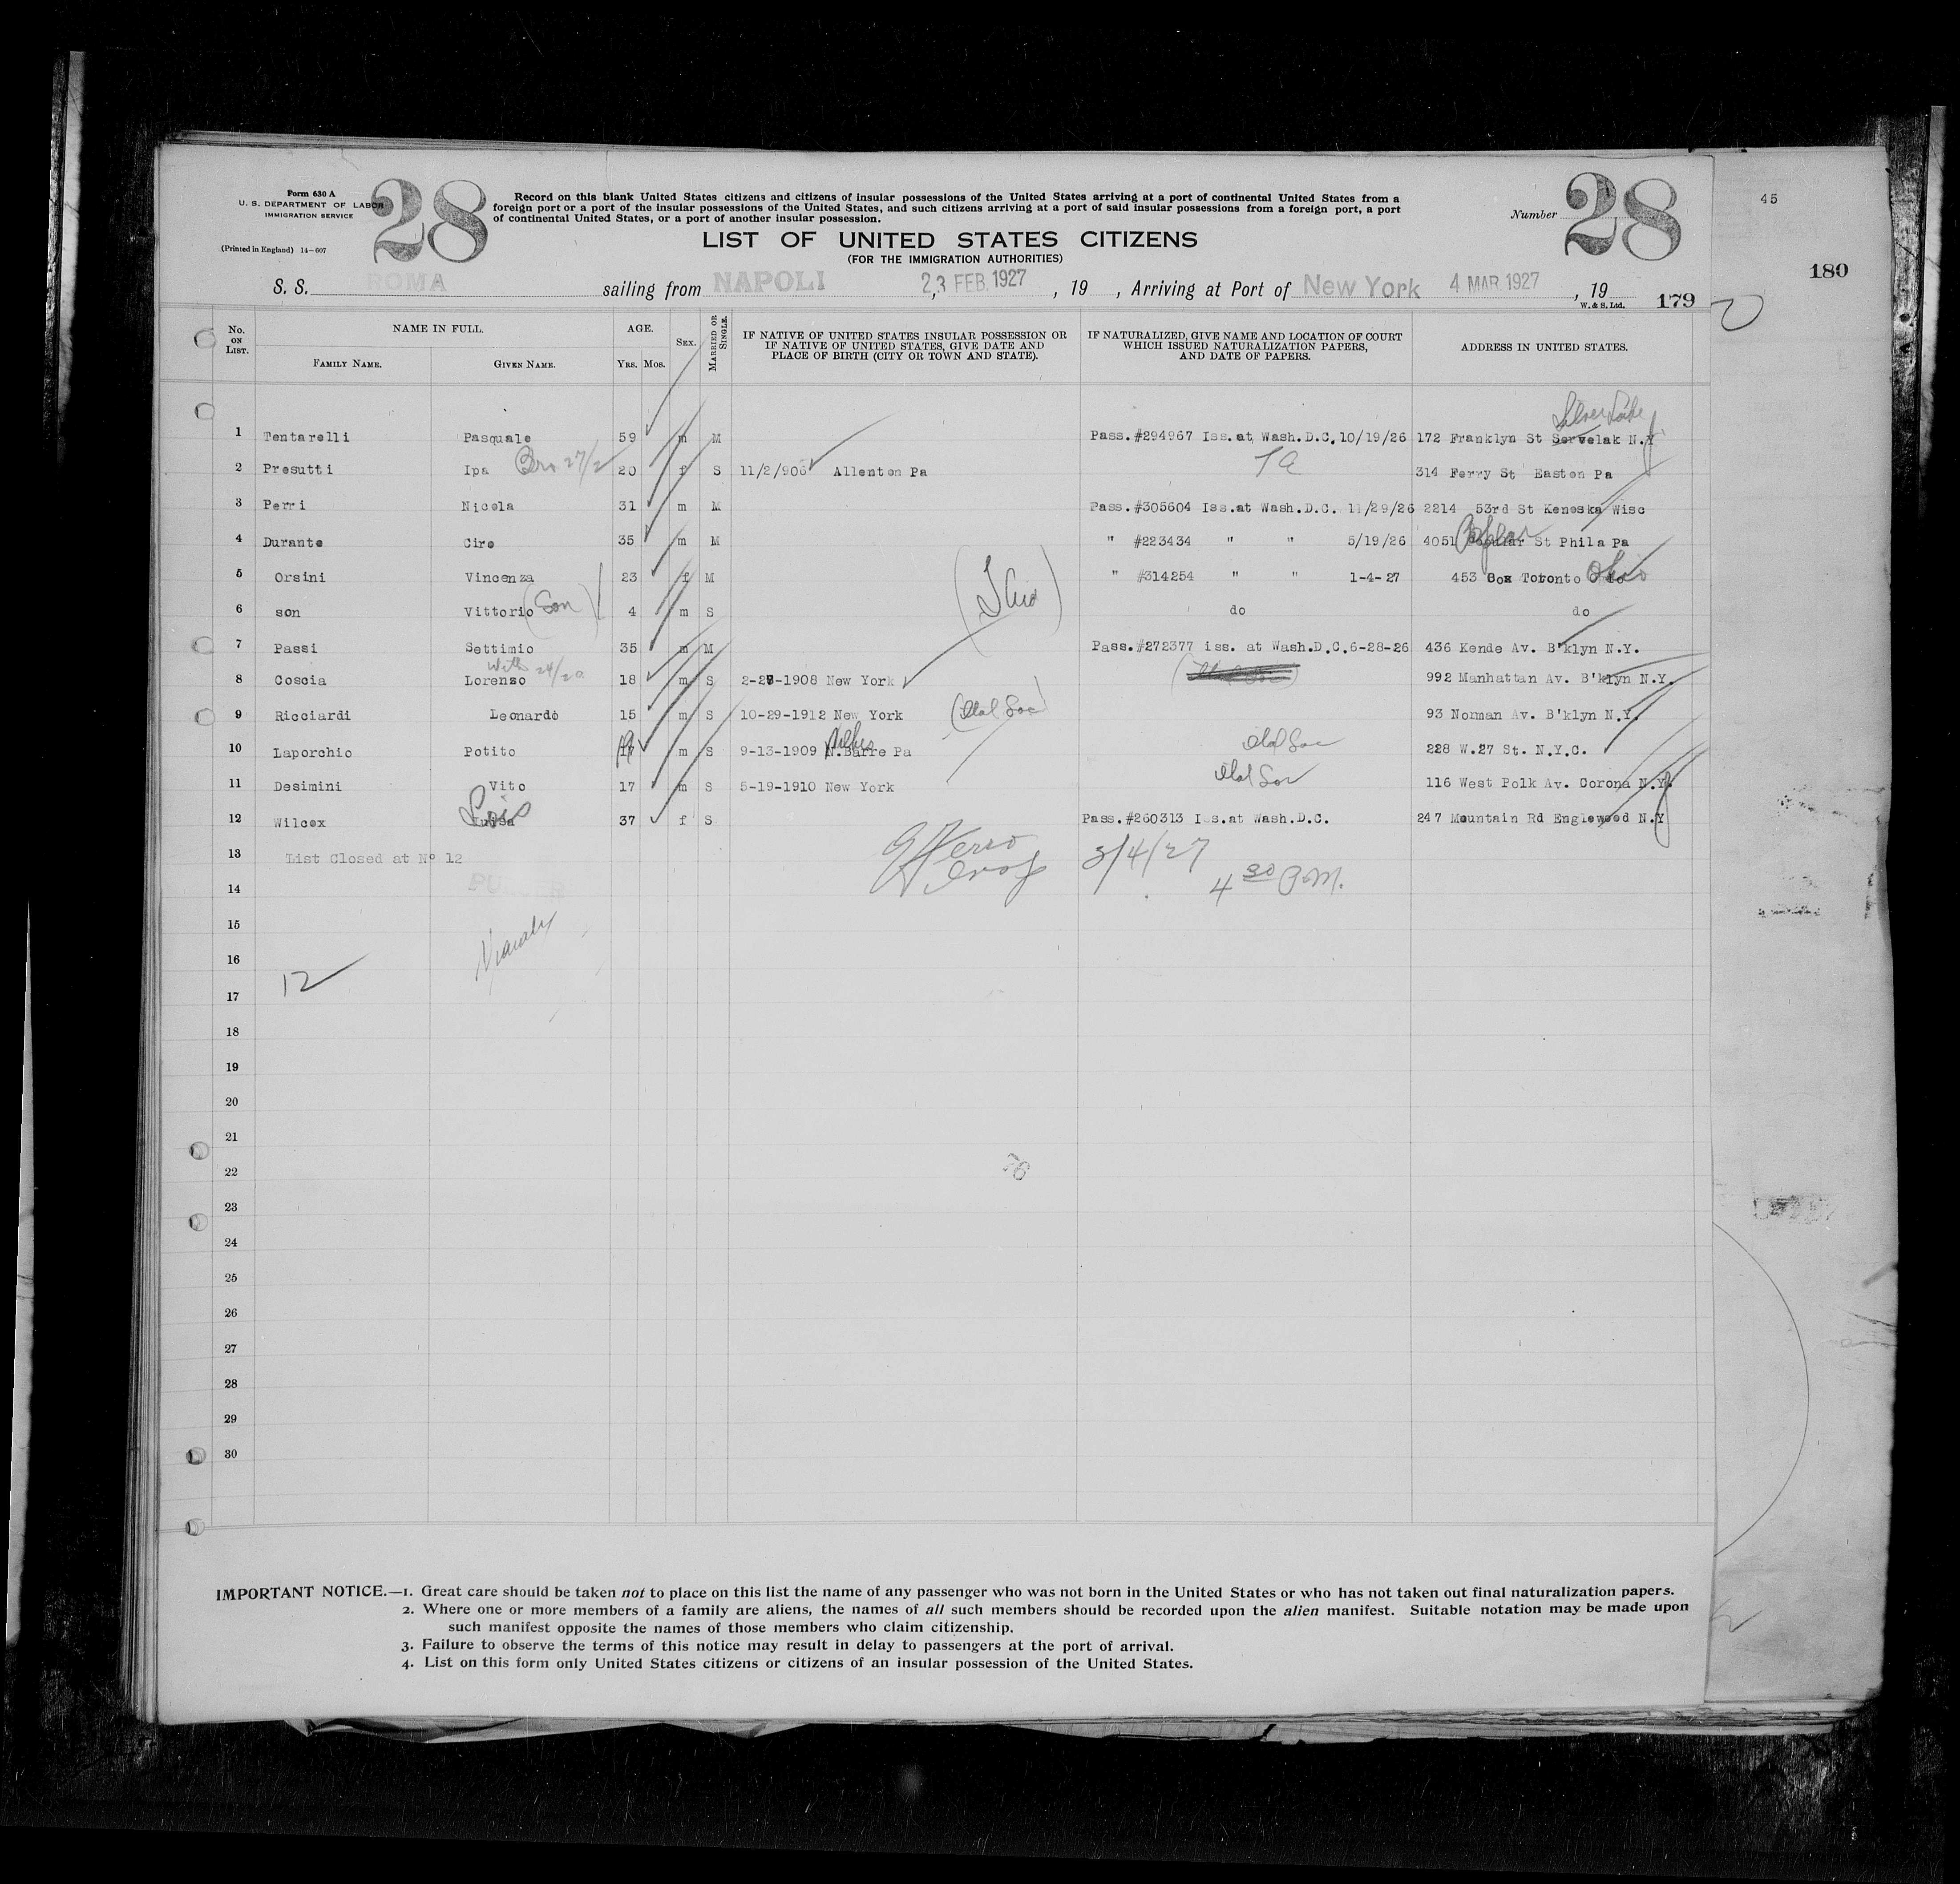 Form 630 A
U. S. DEPARTMENT OF LABOR
IMMIGRATION SERVICE
(Printed in England) 14-607
28
Record on this blank United States citizens and citizens of insular possessions of the United States arriving at a port of continental United States from a
foreign port or a port of the insular possessions of the United States, and such citizens arriving at a port of said insular possessions from a foreign port, a port
of continental United States, or a port of another insular possession.
LIST OF UNITED STATES CITIZENS
(FOR THE IMMIGRATION AUTHORITIES)
Number 28
45
180
S. S. ROMA sailing from NAPOLI 23 FEB. 1927, 19 , Arriving at Port of New York 4 MAR 1927, 19
W. & S. Ltd.
179
No. on List. NAME IN FULL. AGE. Sex. Married or Single. IF NATIVE OF UNITED STATES INSULAR POSSESSION OR IF NATIVE OF UNITED STATES, GIVE DATE AND PLACE OF BIRTH (CITY OR TOWN AND STATE). IF NATURALIZED, GIVE NAME AND LOCATION OF COURT WHICH ISSUED NATURALIZATION PAPERS, AND DATE OF PAPERS. ADDRESS IN UNITED STATES.
Family Name. Given Name. Yrs. Mos.
Silver Lake
1 Tentarelli Pasquale 59 m M Pass.#294967 Iss.at Wash.D.C.10/19/26 172 Franklyn St Servelak N.Y
2 Presutti Ipa 20 f S 11/2/906 Allenton Pa 314 Ferry St Easton Pa
3 Perri Nicola 31 m M Pass.#305604 Iss.at Wash.D.C. 11/29/26 2214 53rd St Keneska Wisc
4 Durante Ciro 35 m M " #223434 " " 5/19/26 4051 Poplar St Phila Pa
5 Orsini Vincenza 23 f M " #314254 " " 1-4-27 453 Box Toronto Ohio
6 son Vittorio (Son) 4 m S do do
7 Passi Settimio 35 m M Pass.#272377 iss. at Wash.D.C.6-28-26 436 Kende Av. B'klyn N.Y.
With 24/20
8 Coscia Lorenso 18 m S 2-28-1908 New York 992 Manhattan Av. B'klyn N.Y.
9 Ricciardi Leonardo 15 m S 10-29-1912 New York 93 Norman Av. B'klyn N.Y.
10 Laporchio Potito 17 m S 9-13-1909 Wilkes N.Barre Pa 228 W.27 St. N.Y.C.
11 Desimini Vito 17 m S 5-19-1910 New York 116 West Polk Av. Corona N.Y.
12 Wilcox Lois Luisa 37 f S Pass.#260313 Iss.at Wash.D.C. 247 Mountain Rd Englewood N.Y
13 List Closed at No 12 3/4/27
14 4 30 P.M.
15
16
12
17
18
19
20
21
22
23
24
25
26
27
28
29
30
IMPORTANT NOTICE.—1. Great care should be taken not to place on this list the name of any passenger who was not born in the United States or who has not taken out final naturalization papers.
2. Where one or more members of a family are aliens, the names of all such members should be recorded upon the alien manifest. Suitable notation may be made upon
such manifest opposite the names of those members who claim citizenship.
3. Failure to observe the terms of this notice may result in delay to passengers at the port of arrival.
4. List on this form only United States citizens or citizens of an insular possession of the United States.